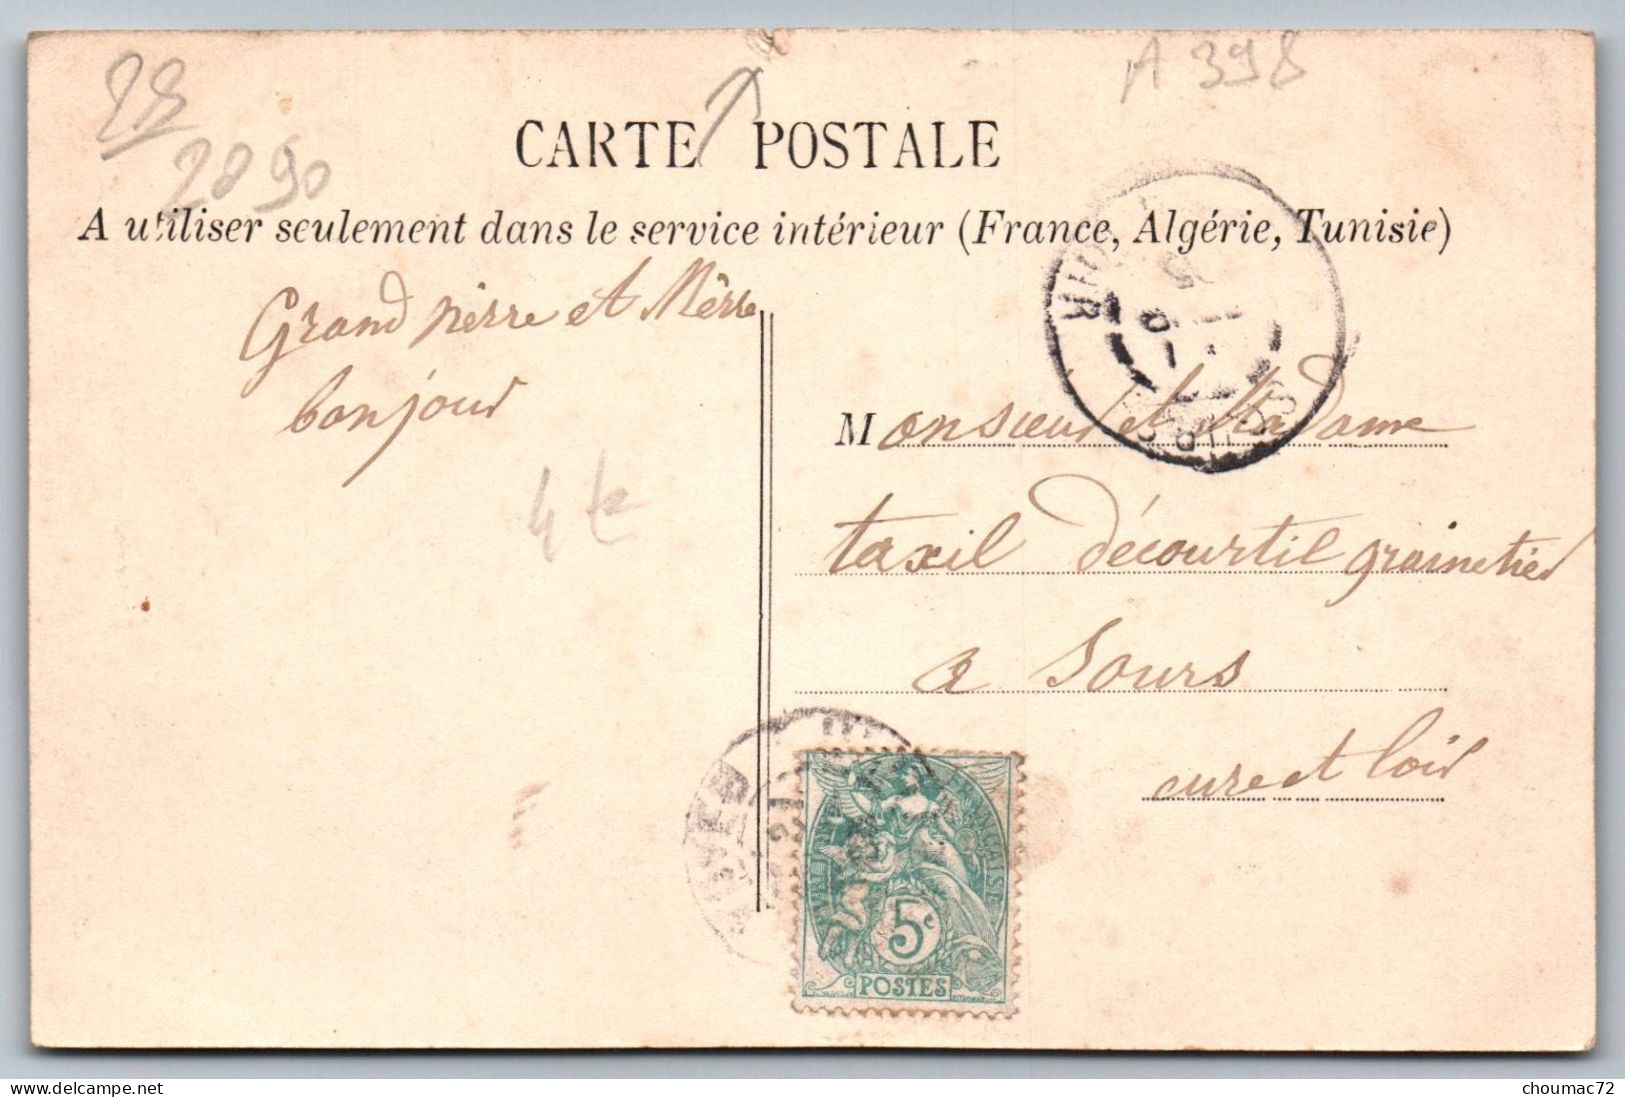 28
2890
A 398
CARTE POSTALE
A utiliser seulement dans le service intérieur (France, Algérie, Tunisie)
Grand pèrre et Mêrre
bonjour
4 €
Monsieur et Madame
taxil Décourtil grainetier
a Sours
eure et loir
5c
POSTES
delcampe.net
choumac72